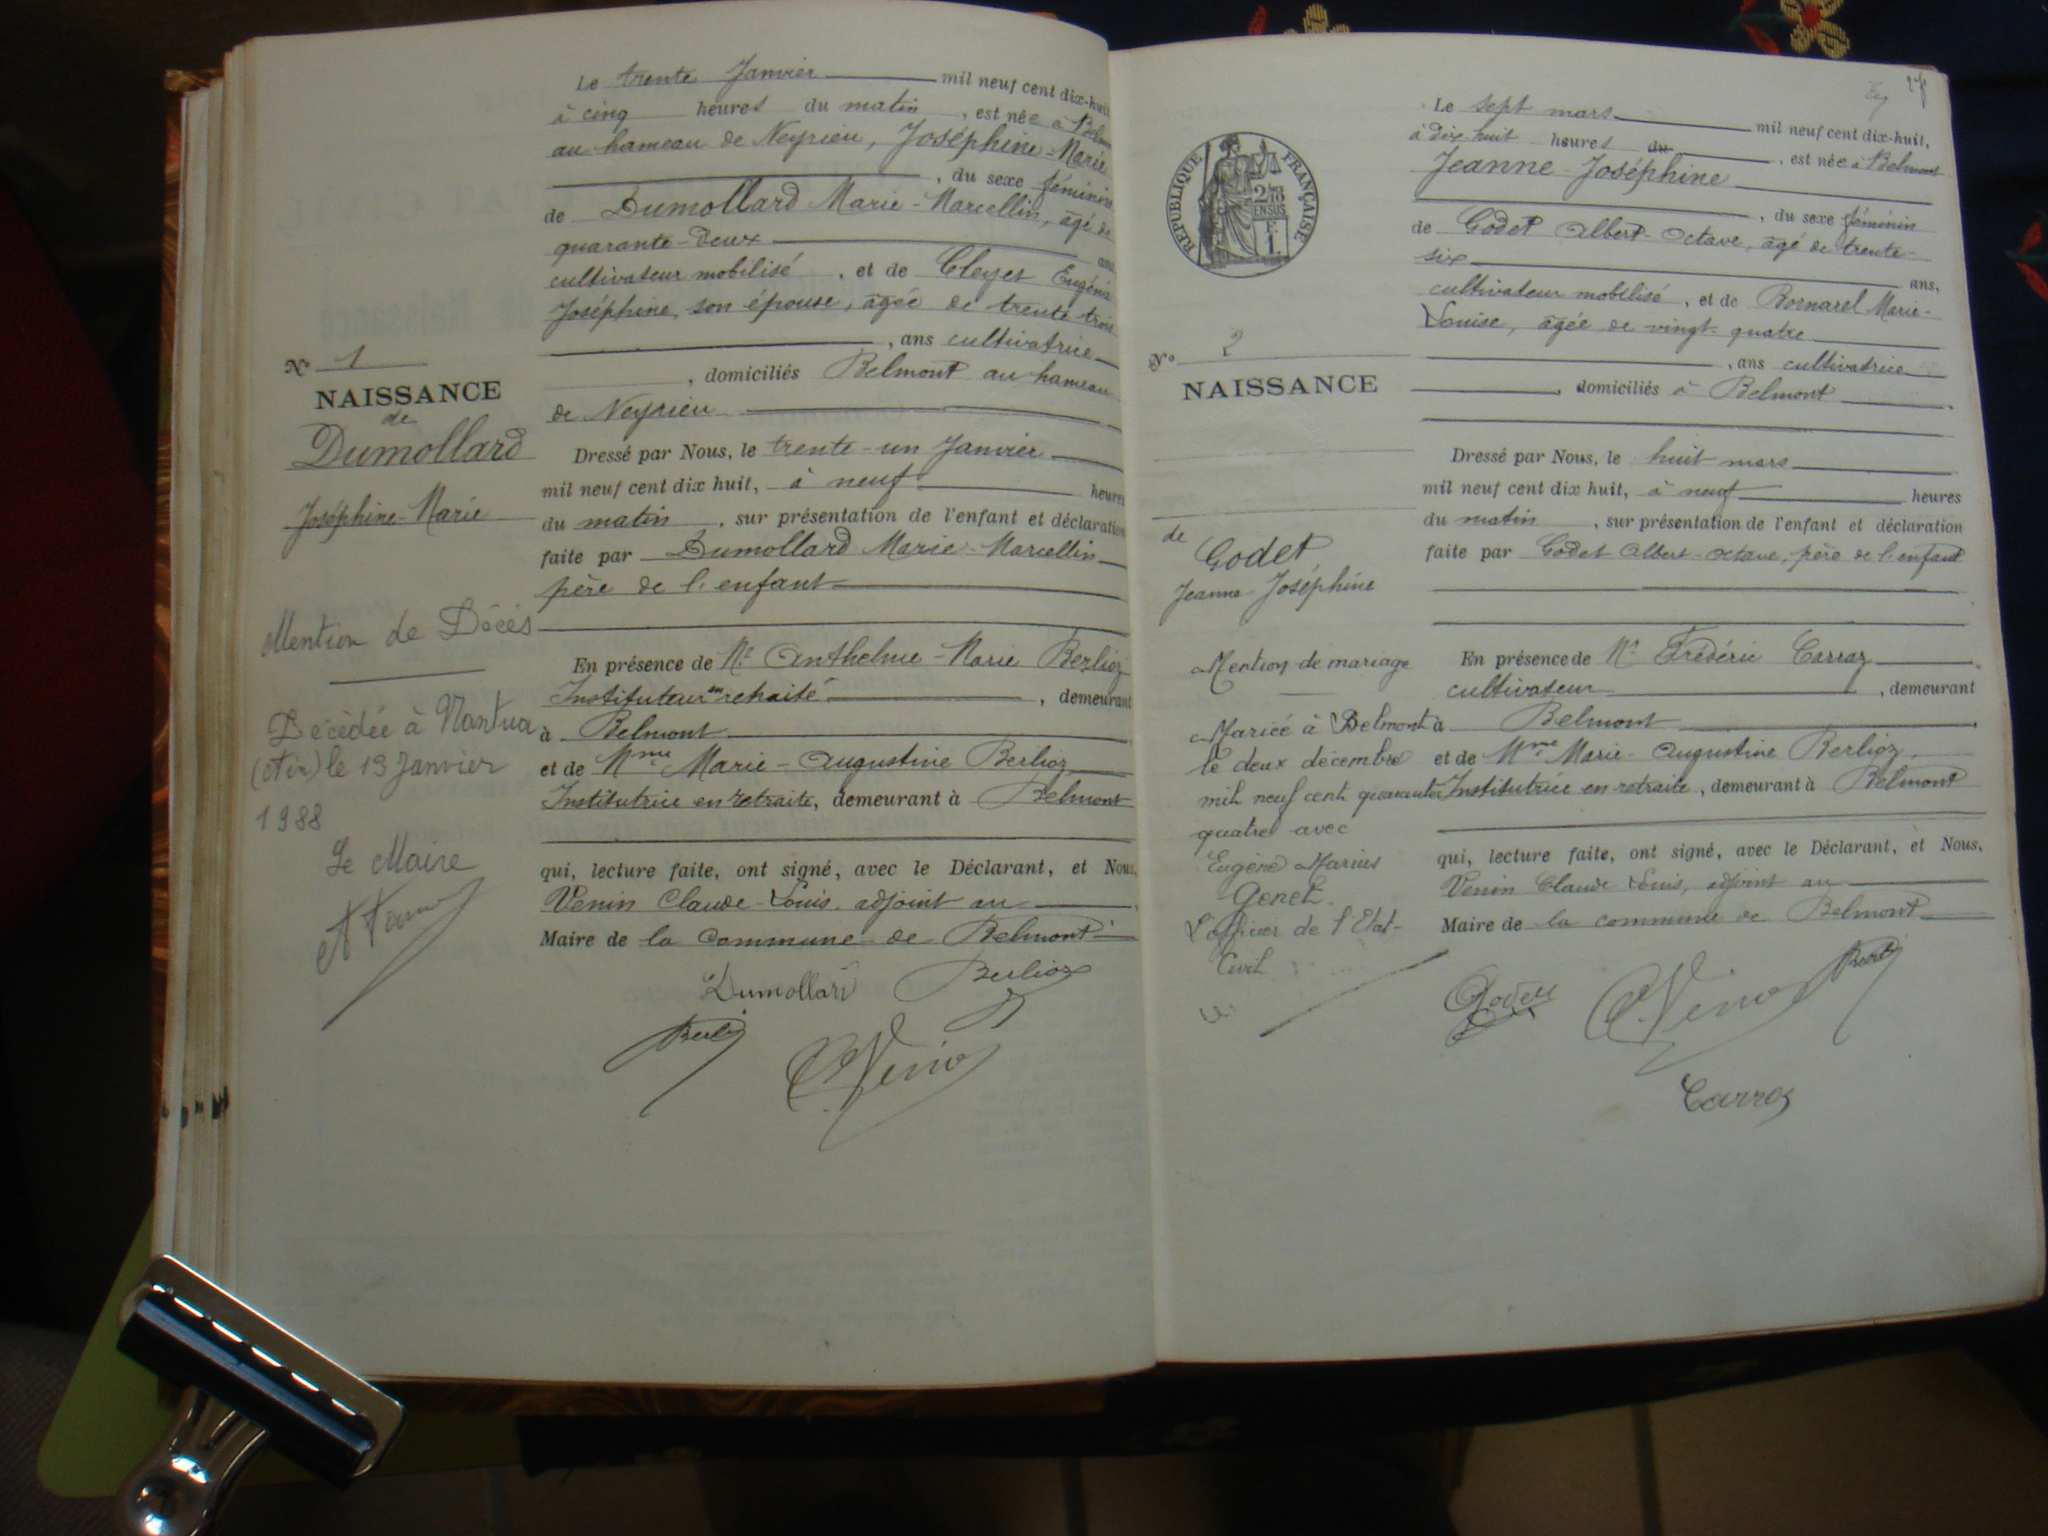 Le trente Janvier mil neuf cent dix-huit
à cinq heures du matin, est née à Belmont
au hameau de Neyrieu, Joséphine-Marie
, du sexe féminin
de Dumollard Marie-Marcellin, âgé de
quarante-deux ans,
cultivateur mobilisé, et de Cleyet Eugénie
Joséphine, son épouse, âgée de trente trois
, ans cultivatrice
, domiciliés Belmont au hameau
de Neyrieu
Dressé par Nous, le trente-un Janvier
mil neuf cent dix huit, à neuf heures
du matin, sur présentation de l'enfant et déclaration
faite par Dumollard Marie-Marcellin
père de l'enfant
En présence de Mr Anthelme-Marie Berlioz
Instituteur en retraite, demeurant
à Belmont
et de Mme Marie-Augustine Berlioz
Institutrice en retraite, demeurant à Belmont
qui, lecture faite, ont signé, avec le Déclarant, et Nous,
Venin Claude-Louis, adjoint au
Maire de la commune de Belmont
Dumollard Berlioz
Berlioz C. Venin
No 1
NAISSANCE
de
Dumollard
Joséphine-Marie
Mention de Décès
Décédée à Nantua
(Ain) le 19 Janvier
1988
Le Maire
Le sept mars mil neuf cent dix-huit,
à dix-huit heures du, est née à Belmont
Jeanne-Joséphine
, du sexe féminin
de Godet Albert-Octave, âgé de trente-
six ans,
cultivateur mobilisé, et de Bornarel Marie-
Louise, âgée de vingt-quatre
, ans cultivatrice
, domiciliés à Belmont
Dressé par Nous, le huit mars
mil neuf cent dix huit, à neuf heures
du matin, sur présentation de l'enfant et déclaration
faite par Godet Albert-Octave, père de l'enfant
En présence de Mr Frédéric Carraz
cultivateur, demeurant
à Belmont
et de Mme Marie-Augustine Berlioz
Institutrice en retraite, demeurant à Belmont
qui, lecture faite, ont signé, avec le Déclarant, et Nous,
Venin Claude Louis, adjoint au
Maire de la commune de Belmont
Godet C. Venin Berlioz
Carraz
RÉPUBLIQUE FRANÇAISE
No 2
NAISSANCE
de
Godet
Jeanne Joséphine
Mention de mariage
Mariée à Belmont
le deux décembre
mil neuf cent quarante
quatre avec
Eugène Marius
Genet.
L'officier de l'Etat-
Civil